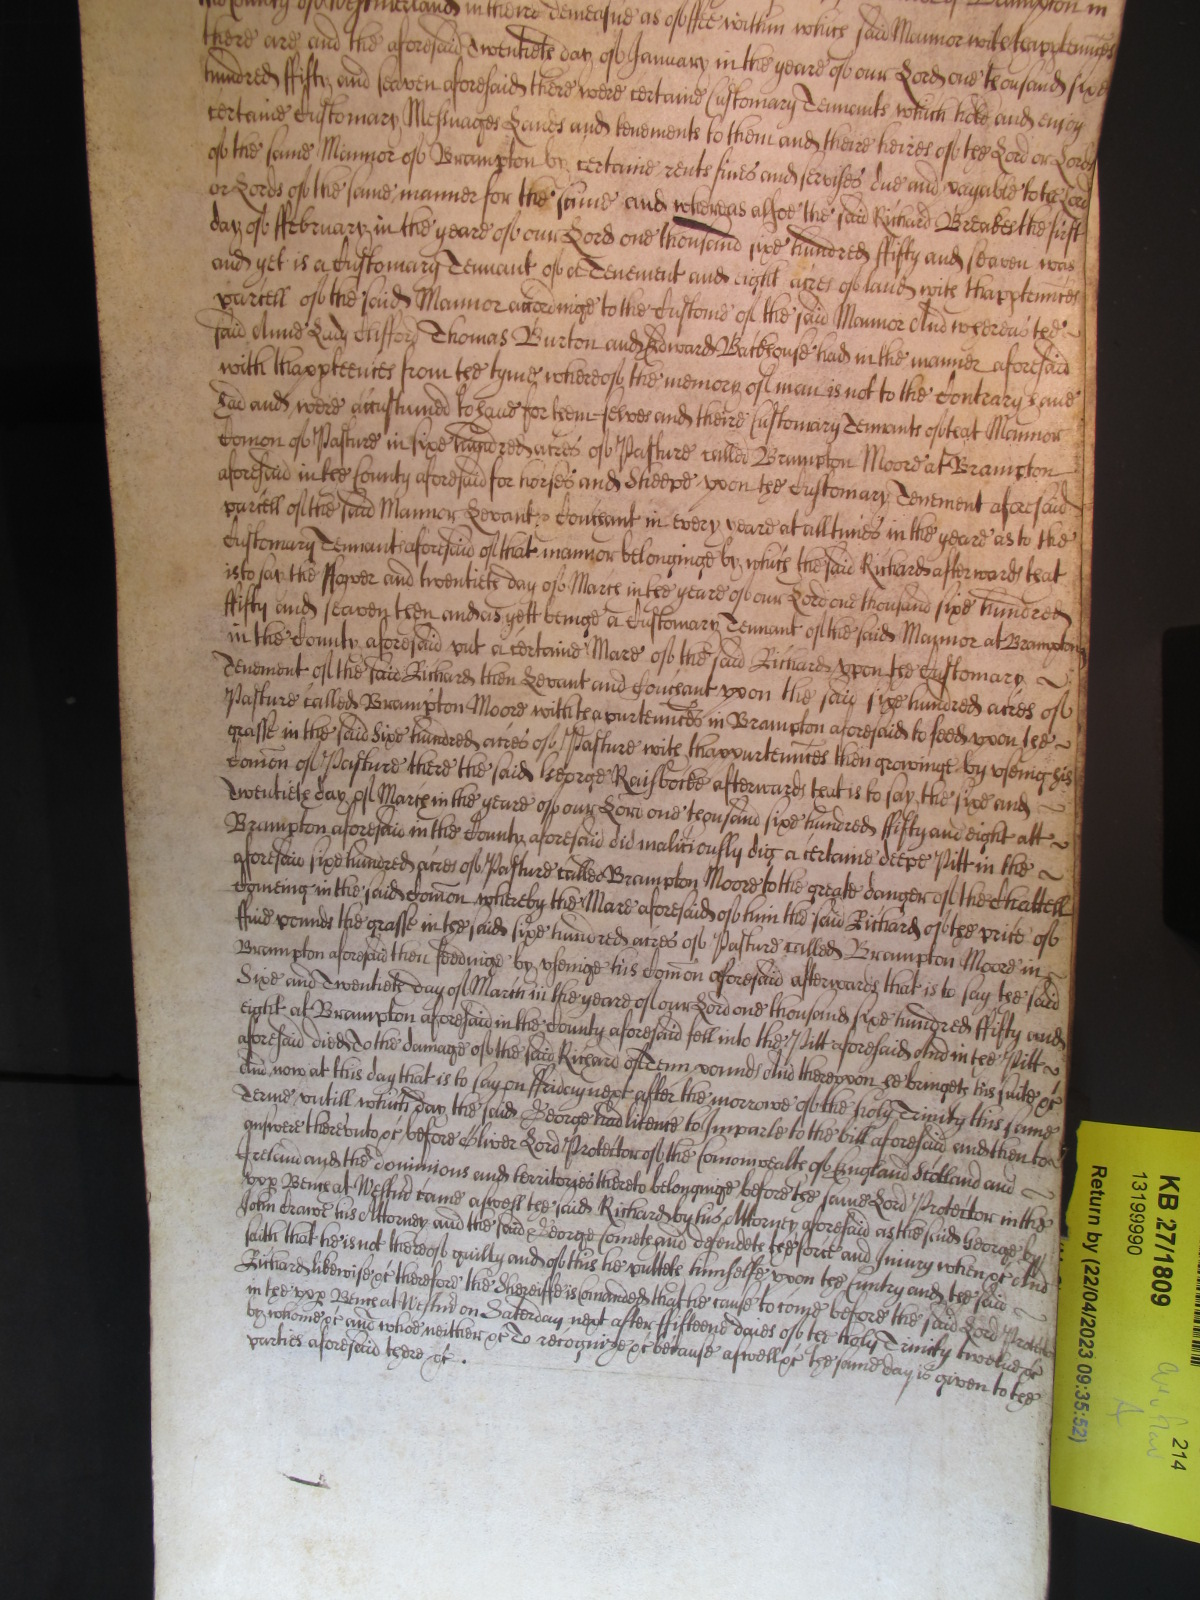 the County of Westmerland in theire demeasne as of ffee within which said Mannor with thapptennces
there are and the aforesaid Twentieth day of January in the yeare of our Lord one thousand sixe
hundred ffifty and seaven aforesaid there were certaine Customary Tennants which hold and enjoy
certaine Customary Messuages Lands and tenements to them and theire heires of the Lord or Lords
of the same Mannor of Brampton by certaine rents fines and servises due and payable to the Lord
or Lords of the same manner for the same and whereas alsoe the said Richard Breakes the first
day of ffebruary in the yeare of our Lord one thousand sixe hundred ffifty and seaven was
and yet is a Customary Tennant of a Tenement and eight acres of land with thapptennces
parcell of the said Mannor accordinge to the Custome of the said Mannor And whereas the
said Anne Lady Clifford Thomas Burton and Edward Backhouse had in the manner aforesaid
with thapptennces from the tyme whereof the memory of man is not to the Contrary have
had and were accustumed to have for them selves and theire Customary Tennants of that Mannor
Comon of Pasture in sixe hundred acres of Pasture called Brampton Moore at Brampton
aforesaid in the County aforesaid for horses and Sheepe upon the Customary Tenement aforesaid
parcell of the said Mannor Levant & Couchant in every yeare at all times in the yeare as to the
Customary Tennants aforesaid of that mannor belonginge by which the said Richard afterwards that
is to say the and twentieth day of March in the yeare of our Lord one thousand sixe hundred
ffifty and seaven then and as yett beinge a Customary Tennant of the said Mannor at Brampton
in the County aforesaid put a certaine Mare of the said Richard upon the Customary
Tenement of the said Richard then Levant and Couchant upon the said sixe hundred acres of
Pasture called Brampton Moore with thapurtennces in Brampton aforesaid to feed upon the
grasse in the said Sixe hundred acres of Pasture with thappurtennces then growinge by useing his
Comon of Pasture there the said George Raisbecke afterwards that is to say the sixe and
Twentieth day of March in the yeare of our Lord one thousand sixe hundred ffifty and eight att
Brampton aforesaid in the County aforesaid did maliciously dig a certaine deepe Pitt in the
aforesaid sixe hundred acres of Pasture called Brampton Moore to the greate danger of the Chattell
Comeing in the said Comon whereby the Mare aforesaid of him the said Richard of the price of
ffive pounds the grasse in the said sixe hundred acres of Pasture called Brampton Moore in
Brampton aforesaid then feedinge by useinge his Comon aforesaid afterwards that is to say the said
Sixe and Twentieth day of March in the yeare of our Lord one thousand sixe hundred ffifty and
eight at Brampton aforesaid in the County aforesaid fell into the Pitt aforesaid And in the Pitt
aforesaid died To the damage of the said Richard of Tenn pounds And thereupon he bringeth his suite &c
And now at this day that is to say on ffriday next after the morrowe of the holy Trinity this same
Terme untill which day the said George had licence to Imparle to the bill aforesaid and then to
answere thereunto &c before Oliver Lord Protector of the Comonwealth of England Scotland and
Ireland and the dominions and territories thereto belonginge before the same Lord Protector in the
upp Bench at Westmr came aswell the said Richard by his Attorney aforesaid as the said George by
John Crane his Attorney and the said George cometh and defendeth the force and Injury when &c And
saith that he is not thereof guilty and of this he putteth himselfe upon the Cuntry and the said
Richard likewise &c therefore the Sherieffe is Comanded that he cause to come before the said Lord Protector
in the upp Bench at Westmr on Saturday next after ffifteene daies of the holy Trinity twelve &c
by whome &c and whoe neither &c To recognize &c because aswell &c the same day is given to the
parties aforesaid there &c.
KB 27/1809
13199990
Return by (22/04/2023 09:35:52)
214